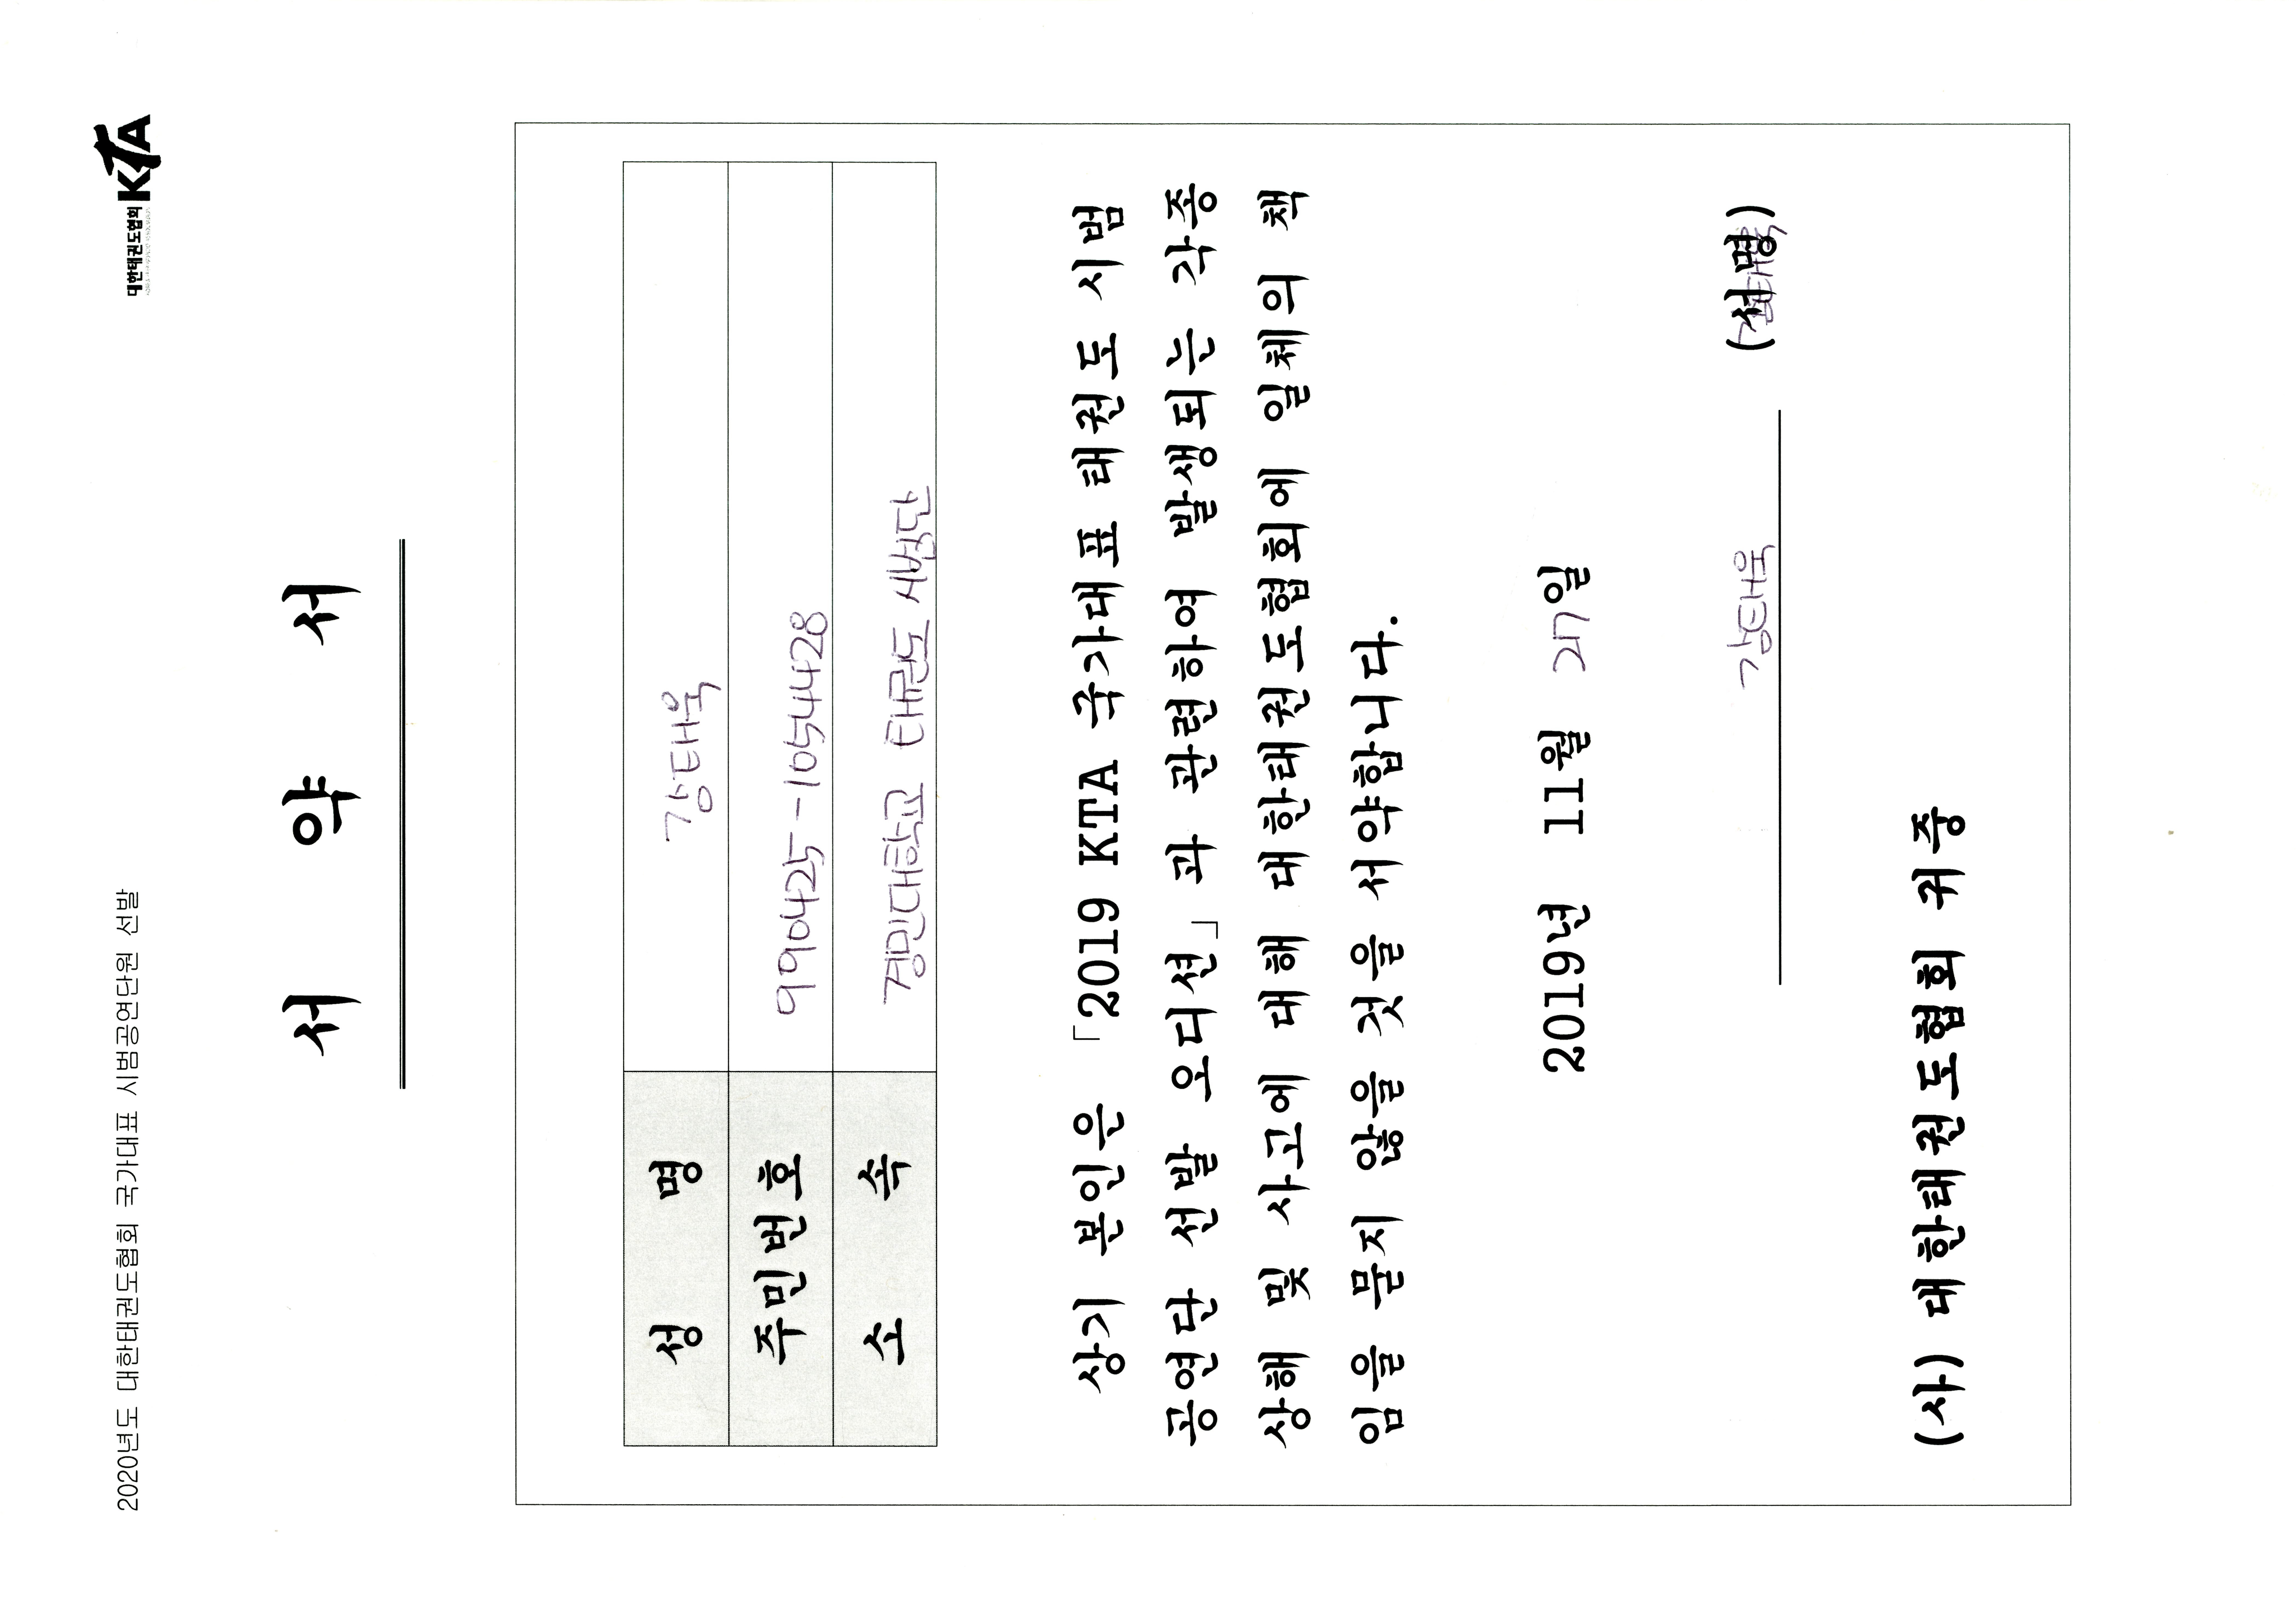 2020년도 대한태권도협회 국가대표 시범공연단원 선발
대한태권도협회 KTA
서 약 서
성 명 강태욱
주민번호 990425-1054428
소 속 경민대학교 태권도 시범단
상기 본인은 「2019 KTA 국가대표 태권도 시범
공연단 선발 오디션」과 관련하여 발생되는 각종
상해 및 사고에 대해 대한태권도협회에 일체의 책
임을 묻지 않을 것을 서약합니다.
2019년 11월 27일
강태욱 (서명)
(사) 대한태권도협회 귀중